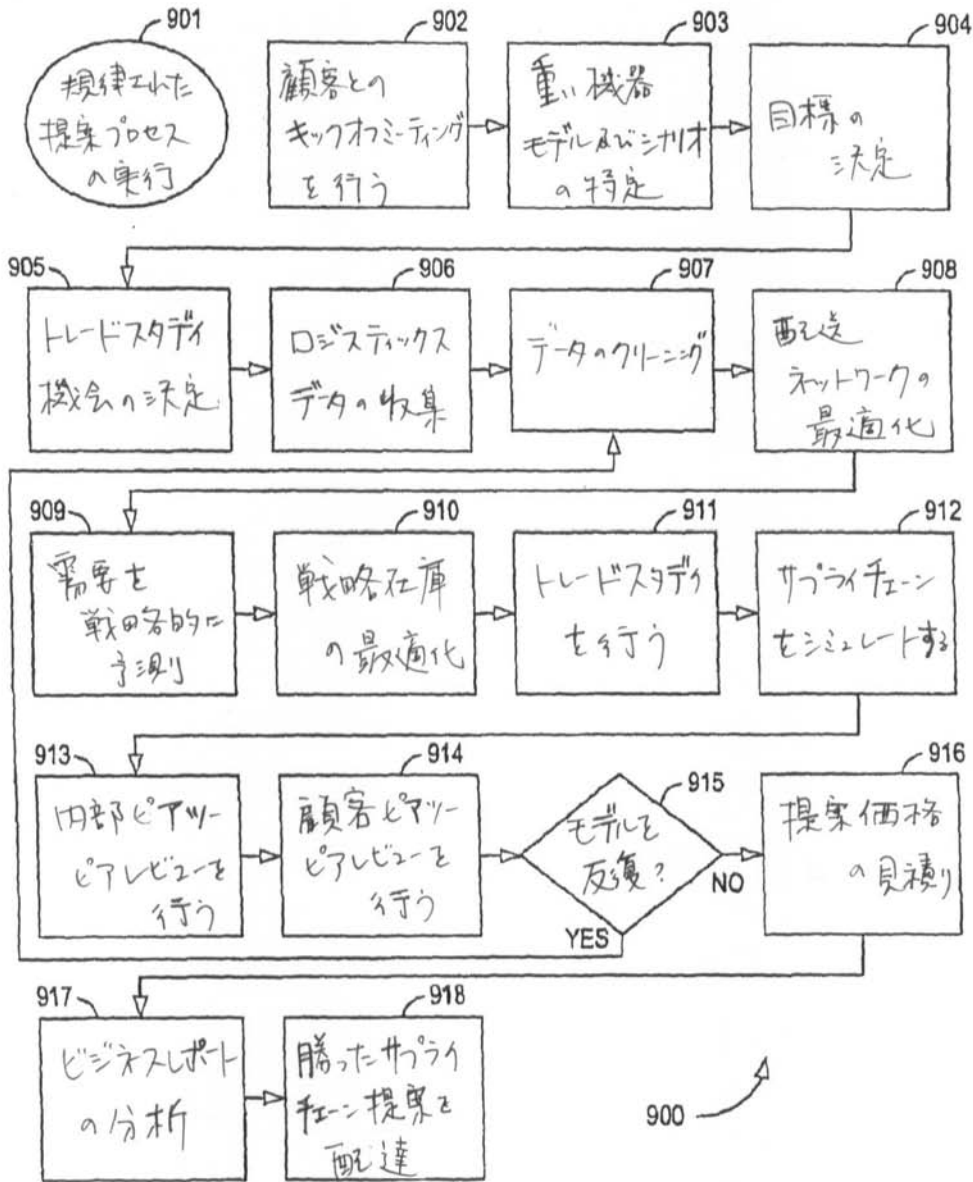 901
規律された
提案プロセス
の実行
902
顧客との
キックオフミーティング
を行う
903
重い機器
モデル及びシナリオ
の特定
904
目標の
決定
905
トレードスタディ
機会の決定
906
ロジスティックス
データの収集
907
データのクリーニング
908
配送
ネットワークの
最適化
909
需要を
戦略的に
予測
910
戦略在庫
の最適化
911
トレードスタディ
を行う
912
サプライチェーン
をシミュレートする
913
内部ピアツー
ピアレビューを
行う
914
顧客ピアツー
ピアレビューを
行う
915
モデルを
反復?
NO
YES
916
提案価格
の見積り
917
ビジネスレポート
の分析
918
勝ったサプライ
チェーン提案を
配達
900